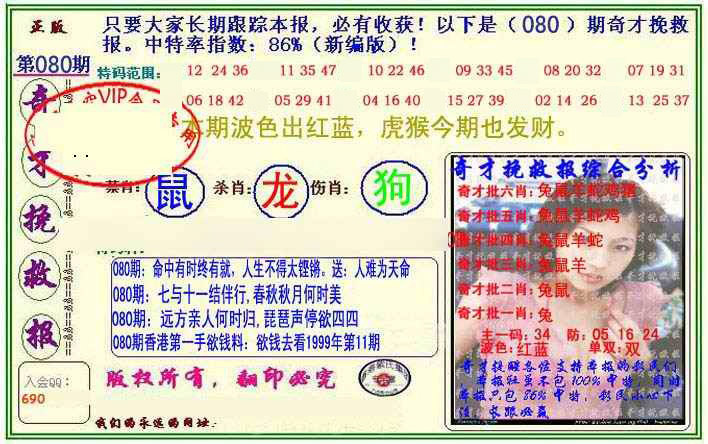 正版
只要大家长期跟踪本报，必有收获！以下是（080）期奇才挽救
报。中特率指数：86%（新编版）！
第080期
特码范围：
12 24 36 11 35 47 10 22 46 09 33 45 08 20 32 07 19 31
06 18 42 05 29 41 04 16 40 15 27 39 02 14 26 13 25 37
奇才挽救报
VIP会
本期波色出红蓝，虎猴今期也发财。
禁肖：鼠 杀肖：龙 伤肖：狗
080期：命中有时终有就，人生不得太铿锵。送：人难为天命
080期：七与十一结伴行,春秋秋月何时美
080期：远方亲人何时归,琵琶声停欲四四
080期香港第一手欲钱料：欲钱去看1999年第11期
奇才挽救报综合分析
奇才批六肖：兔鼠羊蛇鸡猪
奇才批五肖：兔鼠羊蛇鸡
奇才批四肖：兔鼠羊蛇
奇才批三肖：兔鼠羊
奇才批二肖：兔鼠
奇才批一肖：兔
主一码：34 防：05 16 24
波色：红蓝 单双：双
奇才提醒各位支持本报的彩民们
本报社虽不包100%中特，但对
本报只包86%中特，彩民小心下
注，长跟必赢
入会QQ：
690
版权所有，翻印必究
我们的永远的网址：